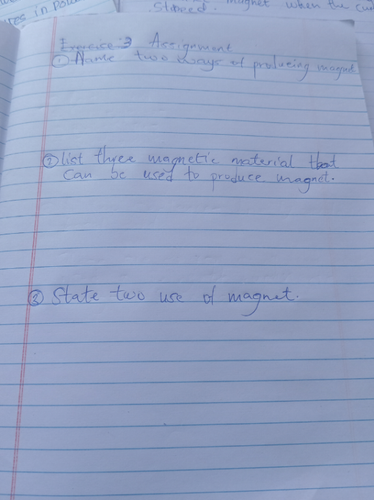 res in polar
stored. magnet when the cu
Exercise 3 Assignment
① Name two ways of producing magnet
② list three magnetic material that
can be used to produce magnet.
③ State two use of magnet.